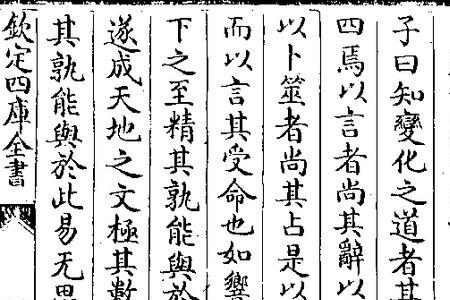 子曰知變化之道者其
四焉以言者尚其辭以
以卜筮者尚其占是以
而以言其受命也如響
下之至精其孰能與於
遂成天地之文極其數
其孰能與於此易无思
欽定四庫全書